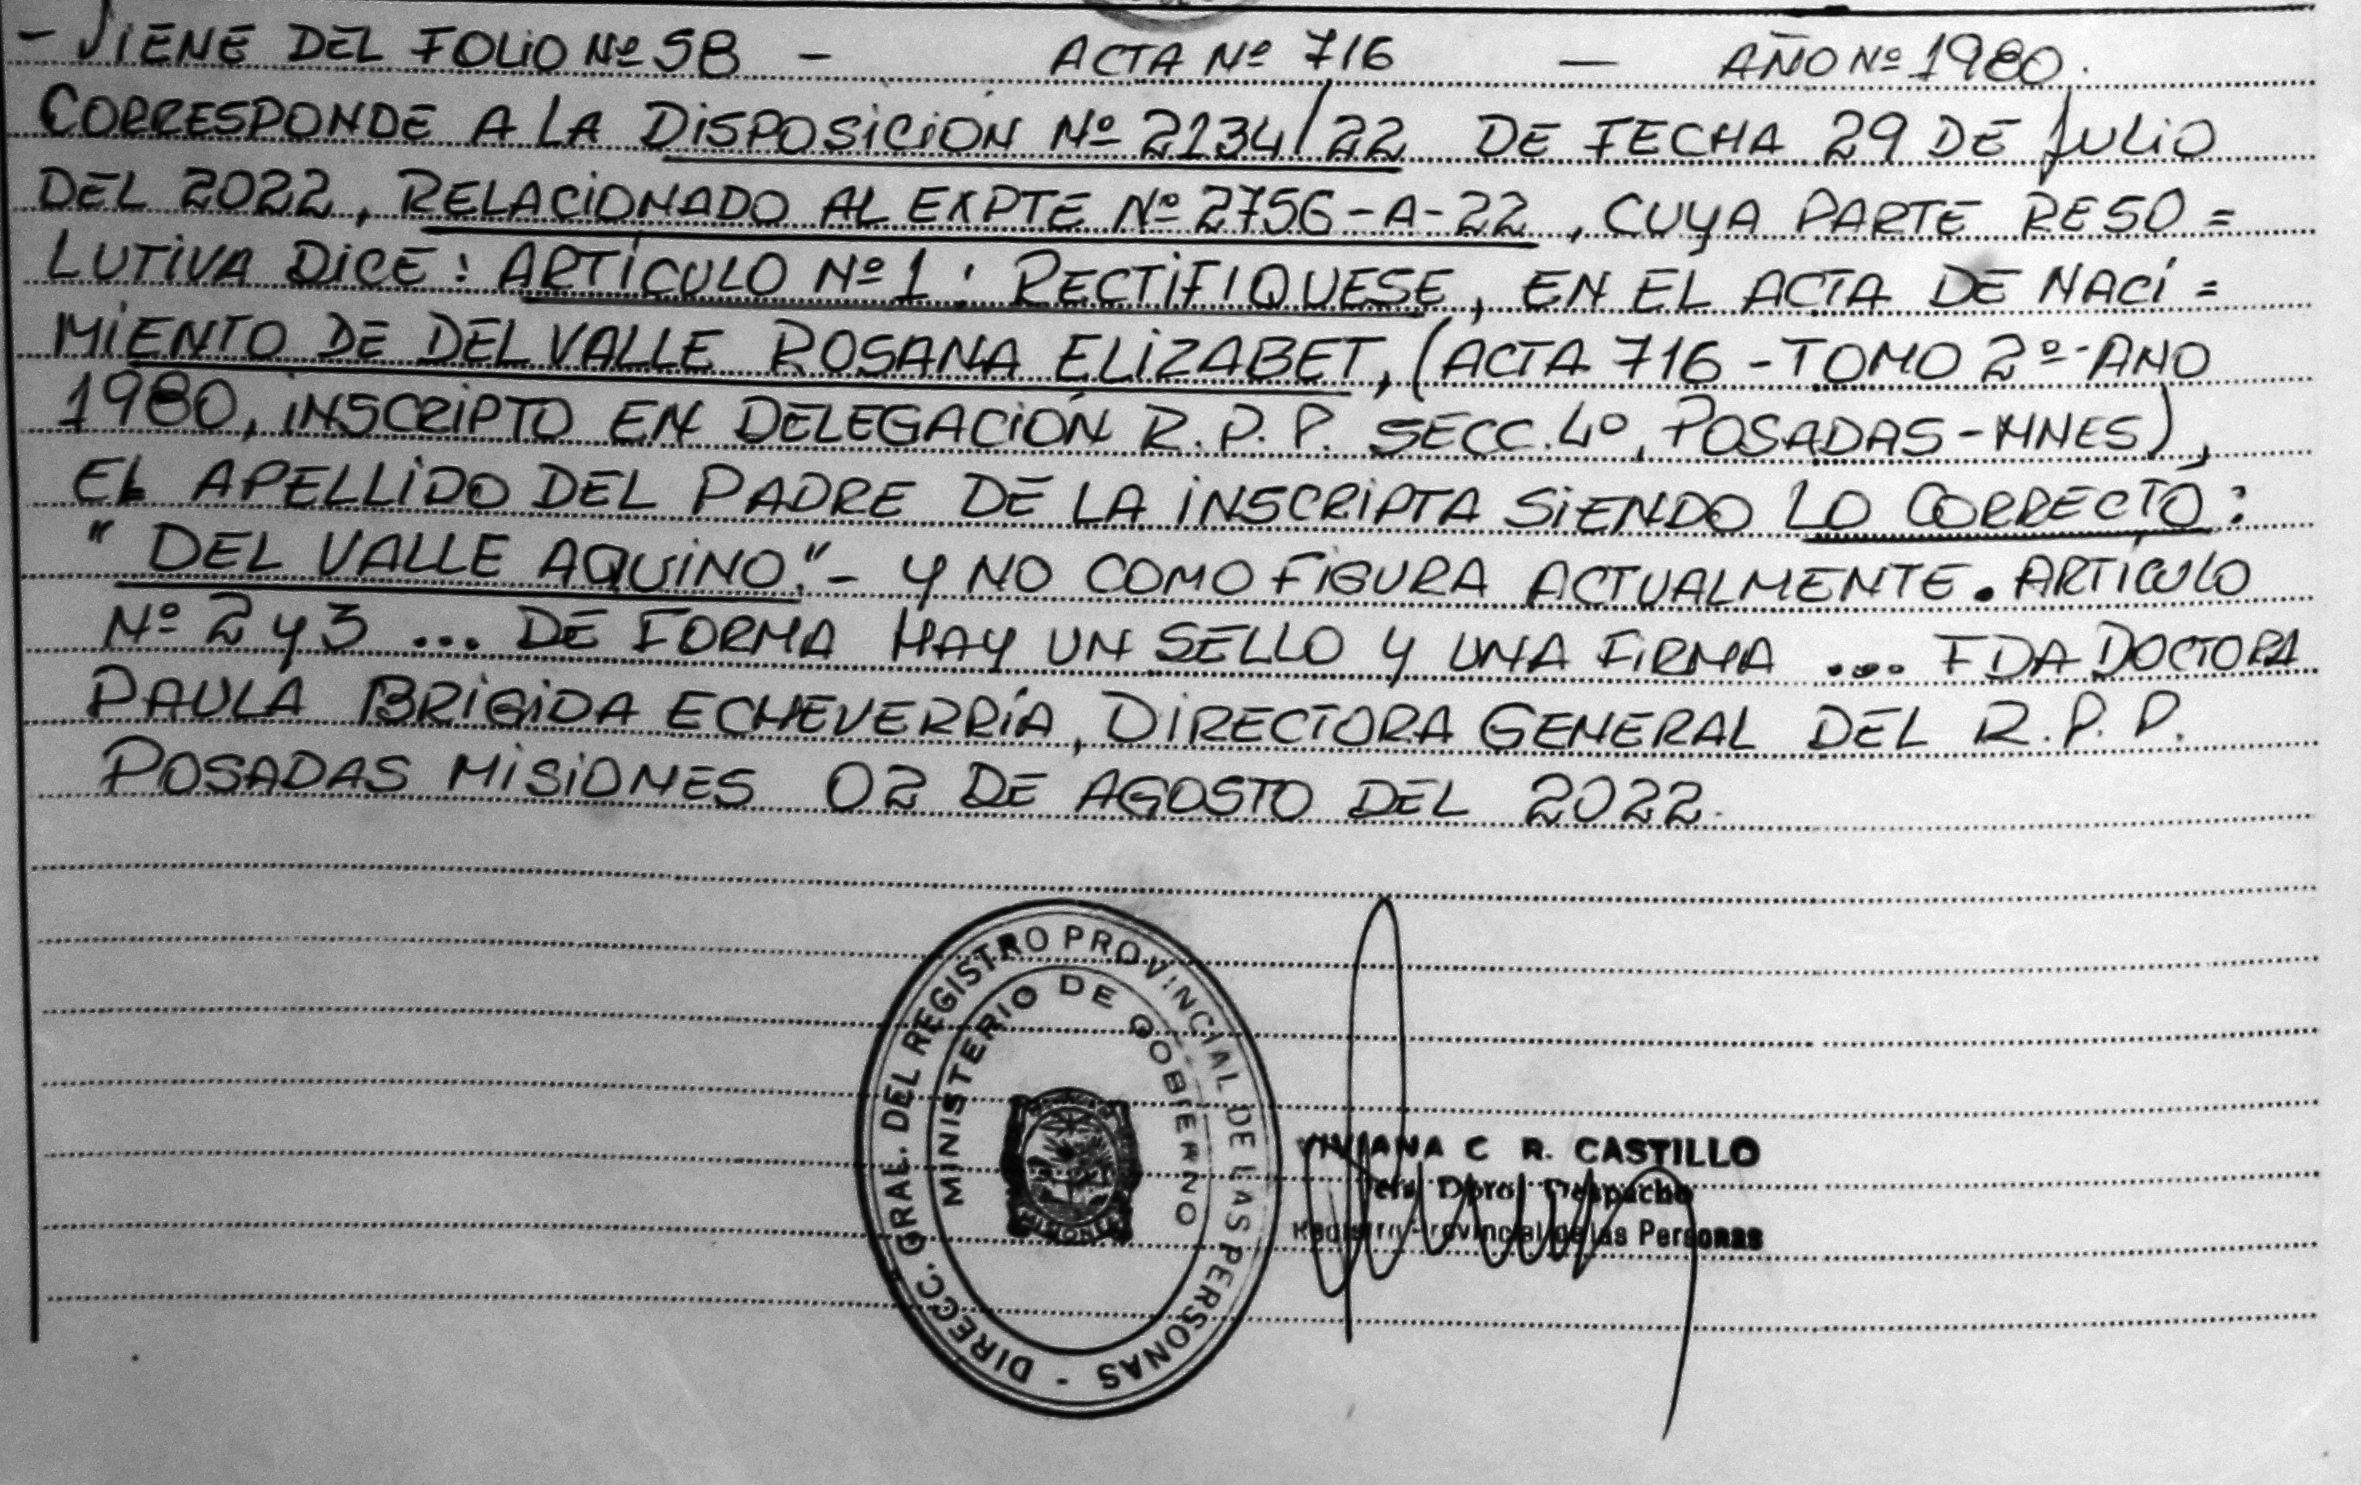 - VIENE DEL FOLIO Nº 58 - ACTA Nº 716 - AÑO Nº 1980.
CORRESPONDE A LA DISPOSICION Nº 2134/22 DE FECHA 29 DE JULIO
DEL 2022, RELACIONADO AL EXPTE Nº 2756-A-22, CUYA PARTE RESO=
LUTIVA DICE: ARTÍCULO Nº 1: RECTIFIQUESE, EN EL ACTA DE NACI=
MIENTO DE DEL VALLE ROSANA ELIZABET, (ACTA 716 - TOMO 2º- AÑO
1980, INSCRIPTO EN DELEGACIÓN R.P.P. SECC. 4º, POSADAS-MNES),
EL APELLIDO DEL PADRE DE LA INSCRIPTA SIENDO LO CORRECTO:
"DEL VALLE AQUINO."- Y NO COMO FIGURA ACTUALMENTE. ARTÍCULO
Nº 2 Y 3 ... DE FORMA HAY UN SELLO Y UNA FIRMA ... FDA DOCTORA
PAULA BRIGIDA ECHEVERRÍA, DIRECTORA GENERAL DEL R.P.P.
POSADAS MISIONES 02 DE AGOSTO DEL 2022.
DIRECC. GRAL. DEL REGISTRO PROVINCIAL DE LAS PERSONAS -
MINISTERIO DE GOBIERNO
MISIONES
VIVIANA C R. CASTILLO
Jefa Dpto. Despacho
Registro Provincial de las Personas